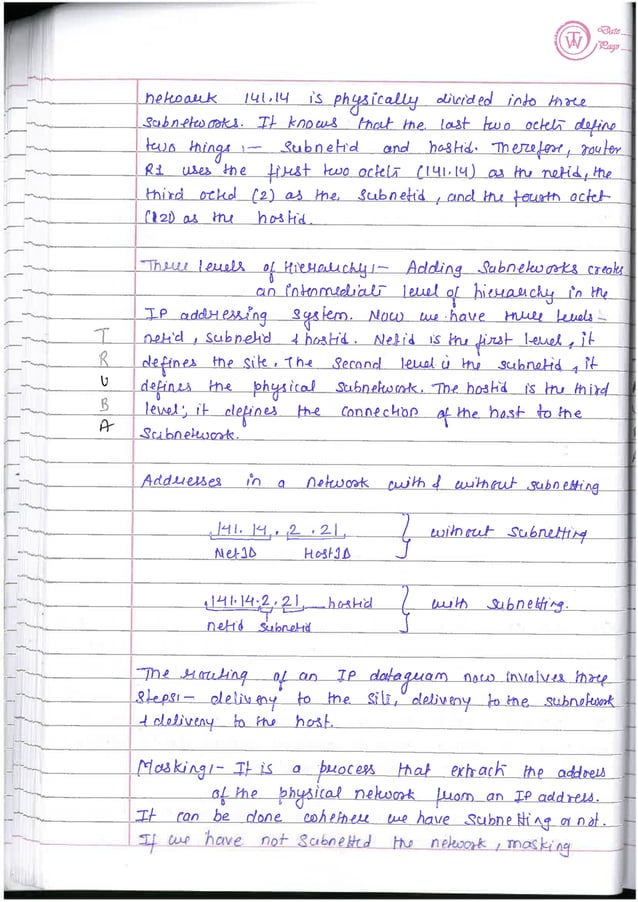 TW Date
Page
network 141.14 is physically divided into three
subnetworks. It knows that the last two octets define
two things :- Subnetid and hostid. Therefore, router
R1 uses the first two octets (141.14) as the netid, the
third octed (2) as the subnetid, and the fourth octet
(121) as the hostid.
Three levels of Hierarchy :- Adding Subnetworks creates
an intermediate level of hierarchy in the
IP addressing system. Now we have three levels -
netid, subnetid & hostid. Netid is the first level, it
defines the site. The second level is the subnetid, it
defines the physical subnetwork. The hostid is the third
level; it defines the connection of the host to the
Subnetwork.
T
R
U
B
A
Addresses in a network with & without subnetting
141.14.2.21 } without Subnetting
NetID HostID
141.14.2.21 hostid } with subnetting.
netid subnetid
The routing of an IP datagram now involves three
steps :- delivery to the site, delivery to the subnetwork
& delivery to the host.
Masking :- It is a process that extract the address
of the physical network from an IP address.
It can be done whethere we have subnetting or not.
If we have not subnetted the network, masking